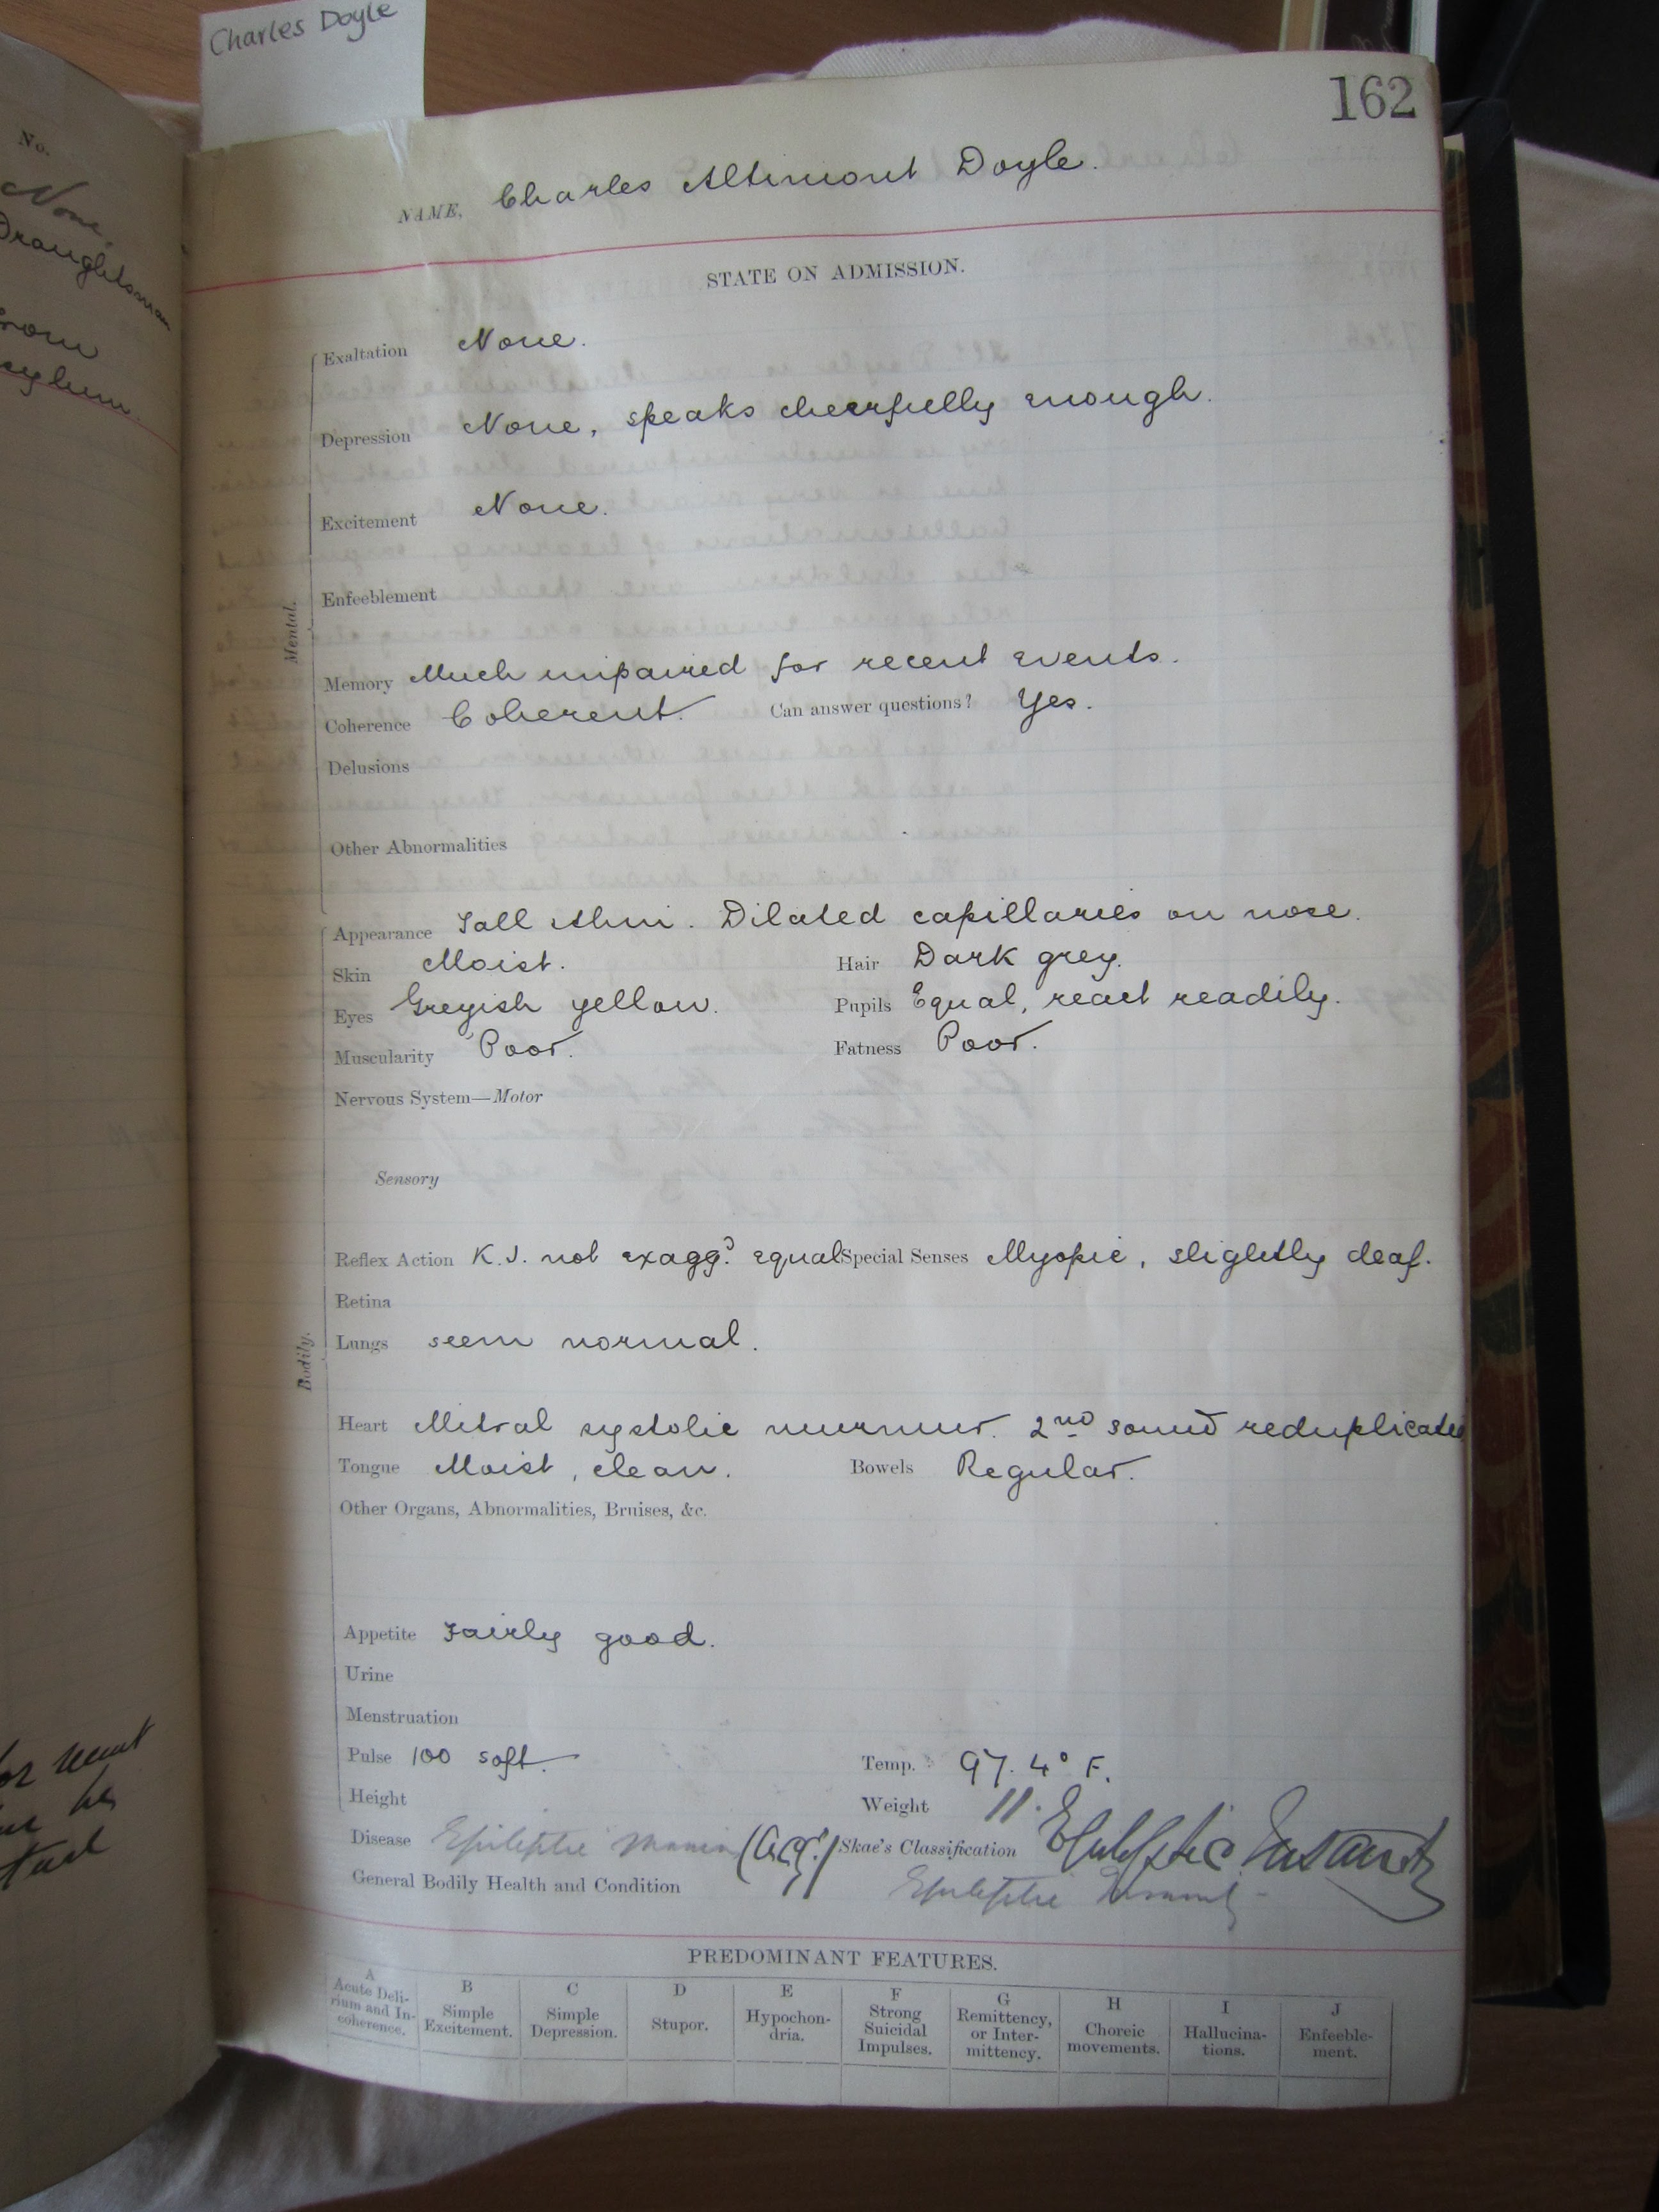 Charles Doyle
162
No.
None.
Draughtsman
from
asylum.
NAME, Charles Altimont Doyle.
STATE ON ADMISSION.
Mental.
Exaltation None.
Depression None, speaks cheerfully enough.
Excitement None.
Enfeeblement
Memory Much impaired for recent events.
Coherence Coherent. Can answer questions? Yes.
Delusions
Other Abnormalities
Bodily.
Appearance Tall thin. Dilated capillaries on nose.
Skin Moist. Hair Dark grey.
Eyes Greyish yellow. Pupils Equal, react readily.
Muscularity Poor. Fatness Poor.
Nervous System—Motor
Sensory
Reflex Action K.J. not exaggd. equal Special Senses Myopic, slightly deaf.
Retina
Lungs seem normal.
Heart Mitral systolic murmur. 2nd sound reduplicated
Tongue Moist, clean. Bowels Regular.
Other Organs, Abnormalities, Bruises, &c.
Appetite Fairly good.
Urine
Menstruation
Pulse 100 soft. Temp. 97.4° F.
Height Weight 11.
Disease Epileptic Mania (acq.) Skae's Classification Epileptic Insanity
General Bodily Health and Condition Epileptic Insanity
PREDOMINANT FEATURES.
A Acute Delirium and Incoherence.
B Simple Excitement.
C Simple Depression.
D Stupor.
E Hypochondria.
F Strong Suicidal Impulses.
G Remittency, or Intermittency.
H Choreic movements.
I Hallucinations.
J Enfeeblement.